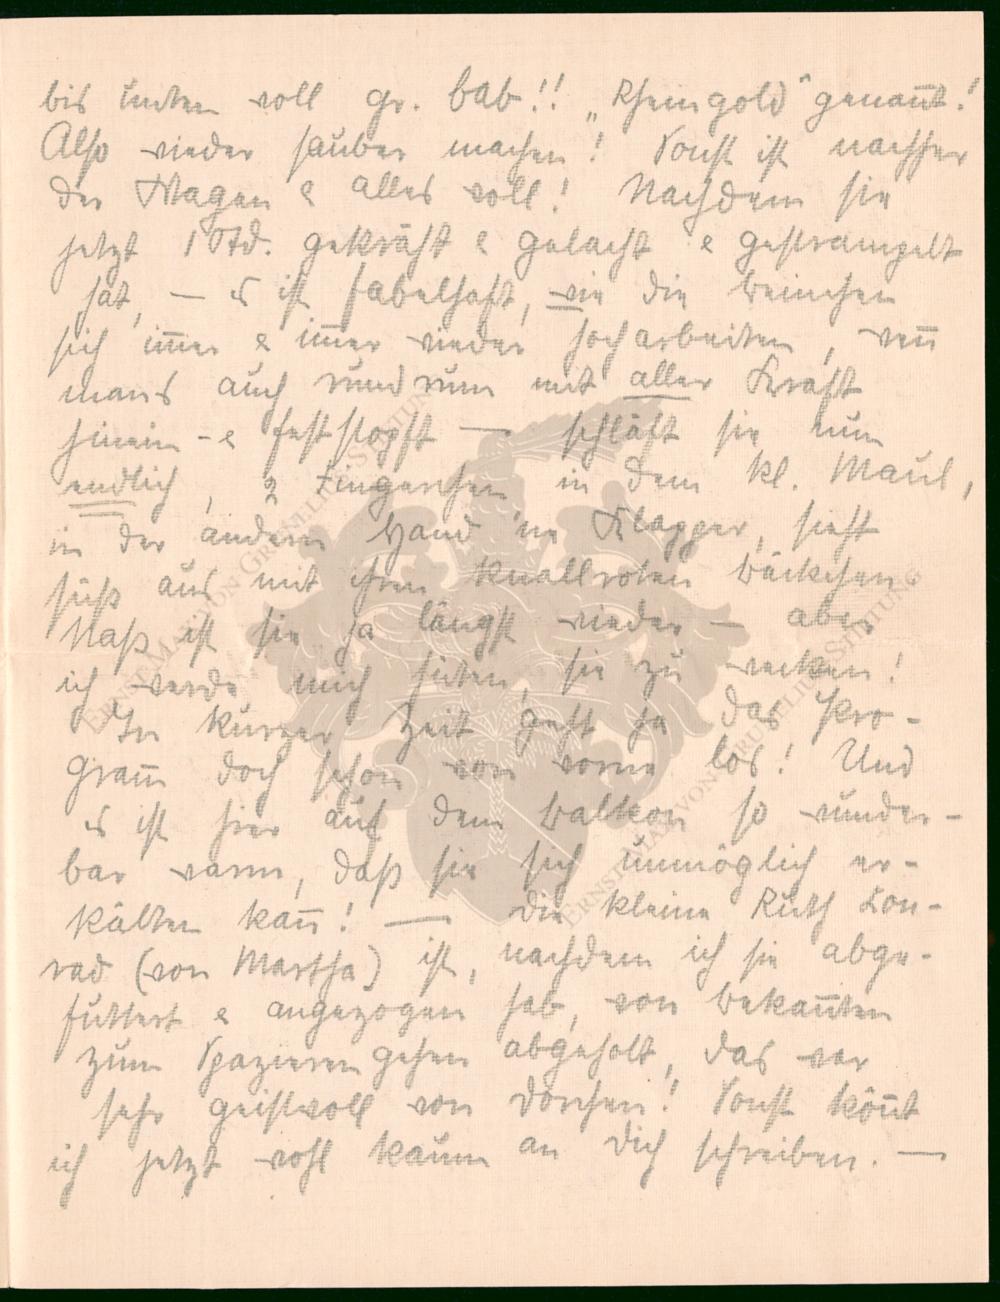 bis unten voll gr. bab!! „Rheingold“ genannt!
Also wieder sauber machen! Sonst ist nachher
der Wagen & alles voll! Nachdem sie
jetzt 1 Std. gekräht & gelacht & gestrampelt
hat, — es ist fabelhaft, wie die Beinchen
sich immer & immer wieder hocharbeiten, wenn
mans auch rundrum mit aller Kraft
hinein- & feststopft — schläft sie nun
endlich, 2 Fingerchen in dem kl. Maul,
in der andern Hand 'ne Klapper, sieht
süß aus mit ihren knallroten Bäckchen.
Naß ist sie ja längst wieder — aber
ich werde mich hüten, sie zu wecken!
In kurzer Zeit geht ja das Pro-
gramm doch schon von vorne los! Und
es ist hier auf dem Balkon so wunder-
bar warm, daß sie sich unmöglich er-
kälten kann! — Die kleine Ruth Kon-
rad (von Martha) ist, nachdem ich sie abge-
füttert & angezogen hab, von Bekannten
zum Spazierengehen abgeholt, das war
sehr geistvoll von Dorchen! Sonst könnt
ich jetzt wohl kaum an Dich schreiben. —
ERNST MAX VON GRUNELIUS-STIFTUNG
ERNST MAX VON GRUNELIUS-STIFTUNG